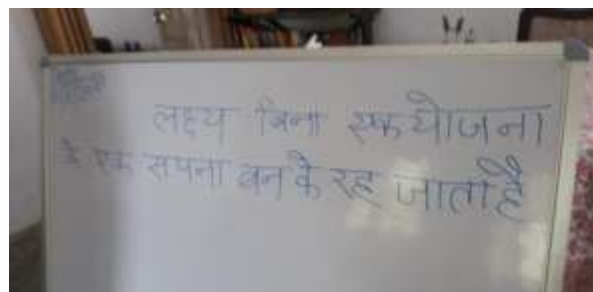 लक्ष्य बिना एक योजना
के एक सपना बन के रह जाता है